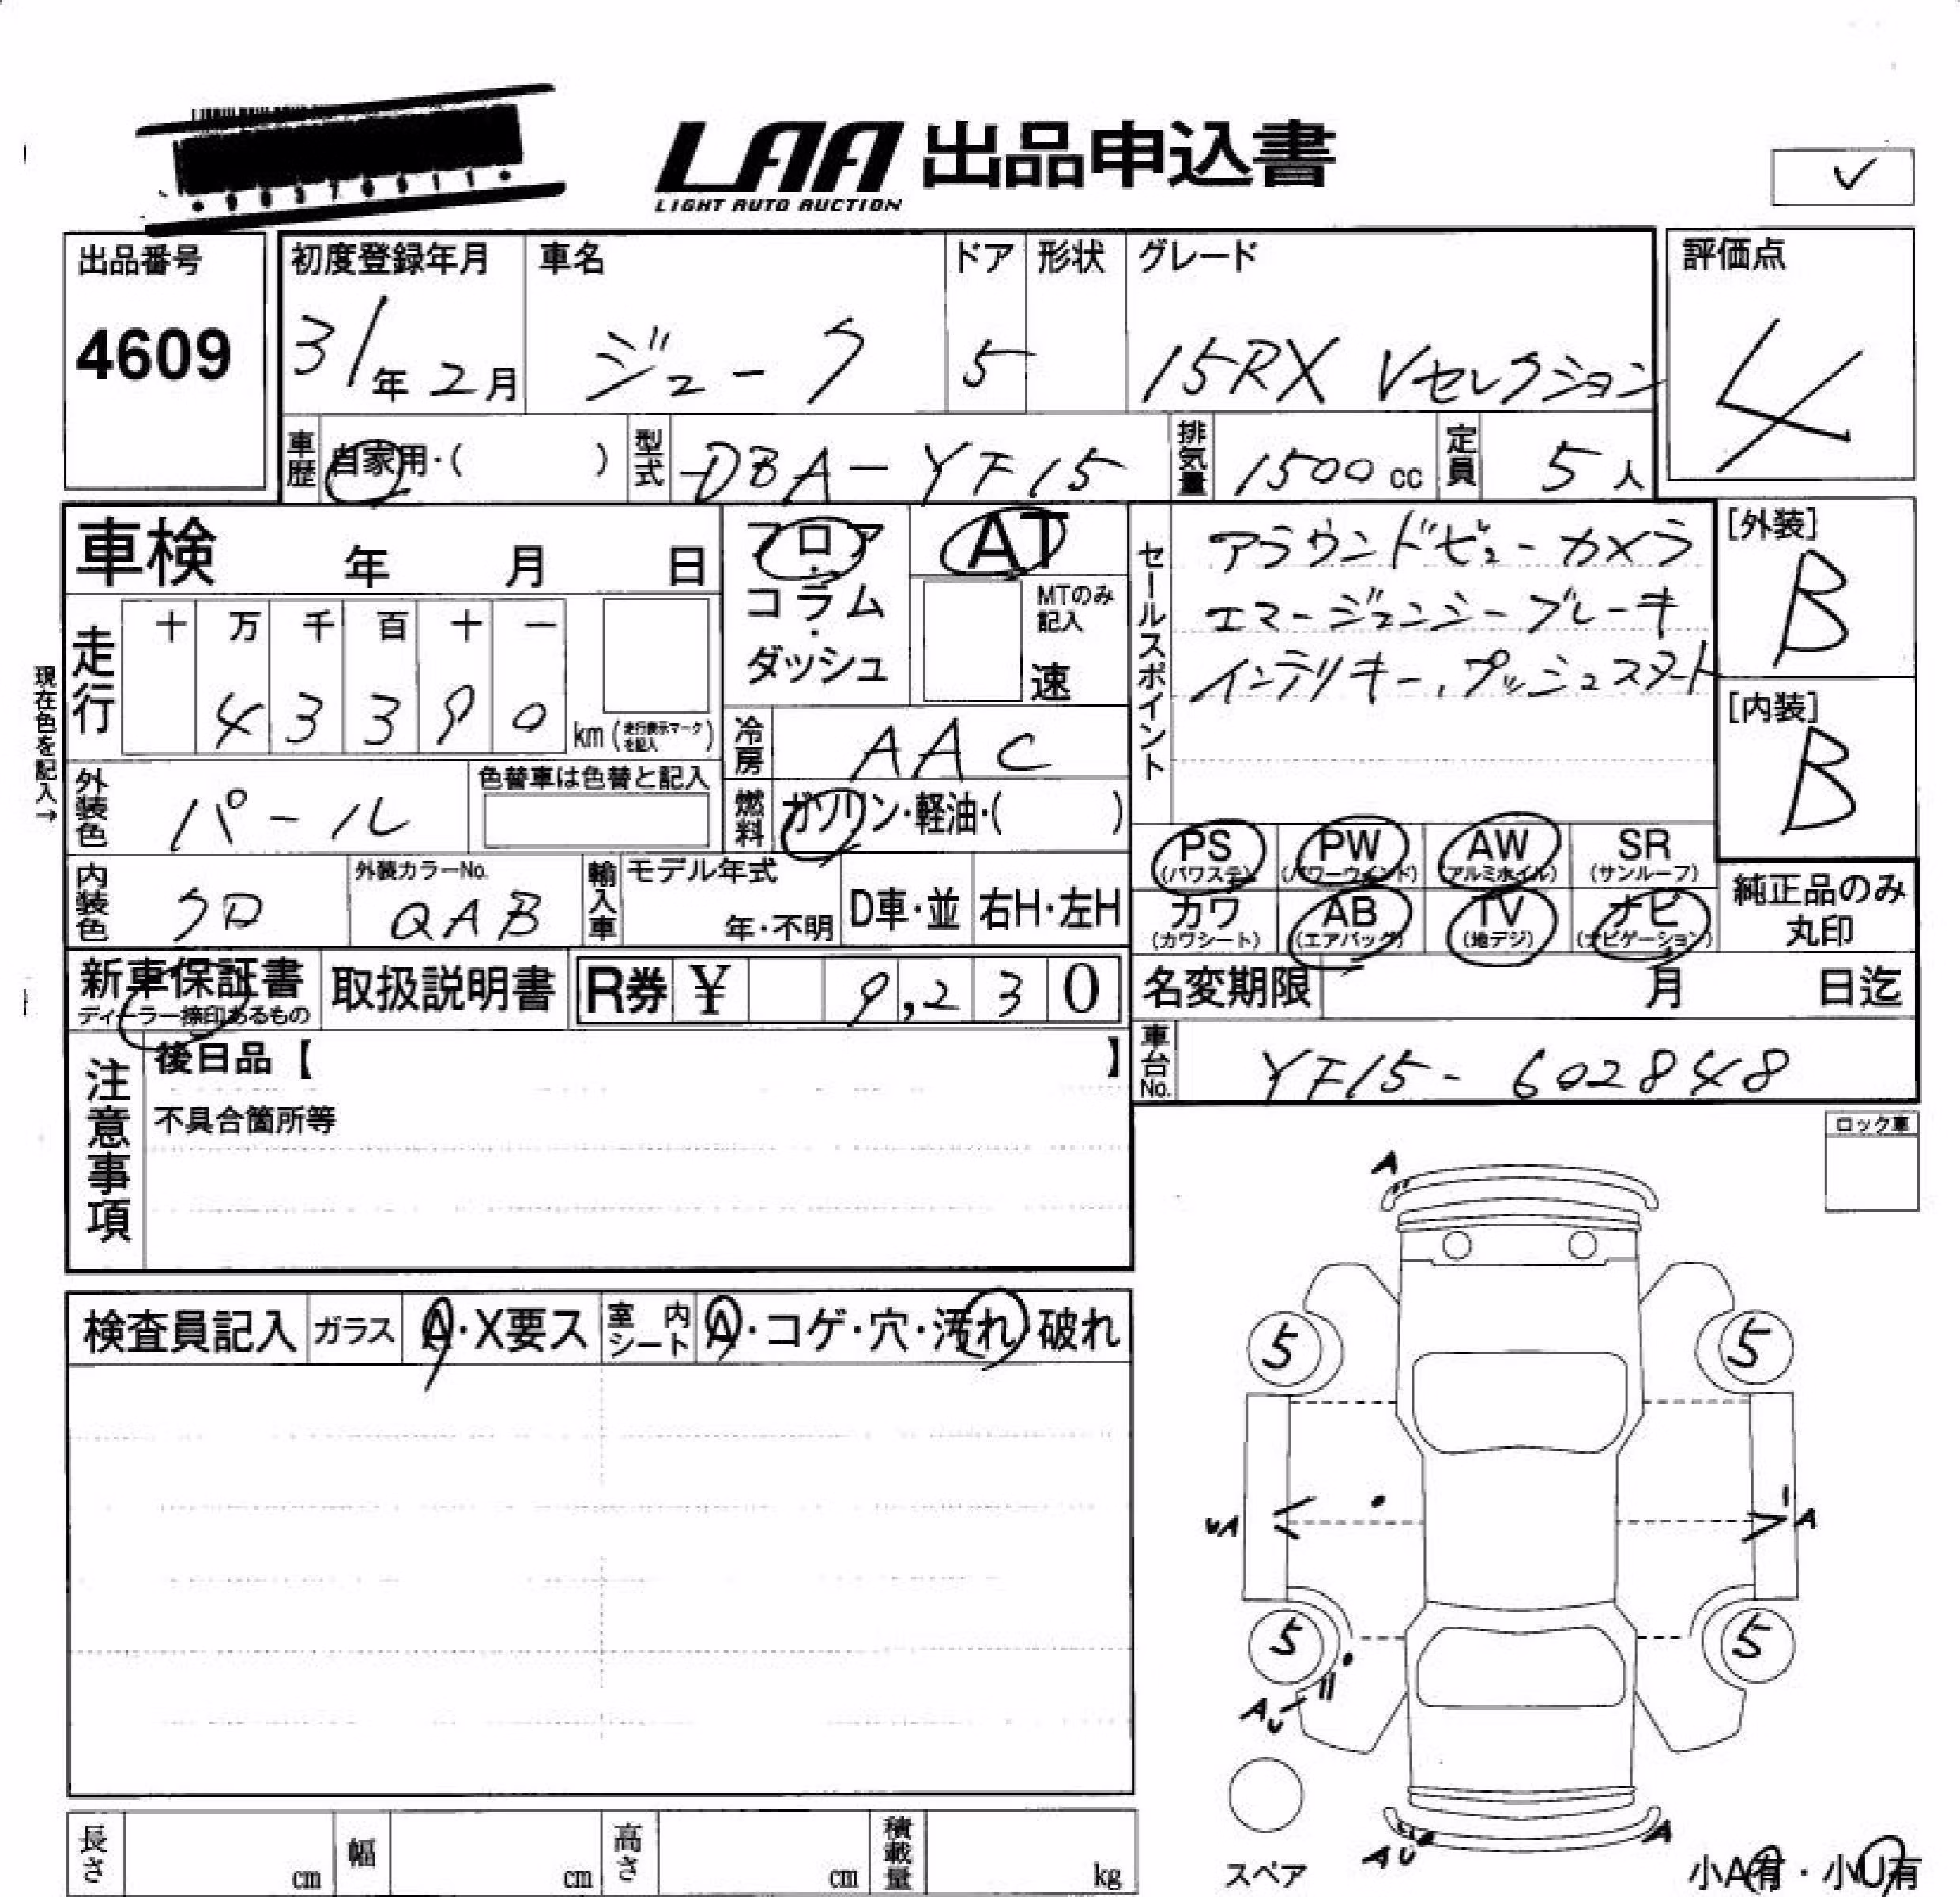 LAA 出品申込書
LIGHT AUTO AUCTION
✓
出品番号
4609
初度登録年月
31年 2月
車名
ジューク
ドア
5
形状
グレード
15RX Vセレクション
評価点
4
車歴 自家用・( )
型式 DBA-YF15
排気量 1500cc
定員 5人
車検 年 月 日
フロア・コラム・ダッシュ
AT
MTのみ記入
速
セールスポイント
アラウンドビューカメラ
エマージェンシーブレーキ
インテリキー、プッシュスタート
[外装]
B
[内装]
B
現在色を記入→
走行
十 万 千 百 十 一
4 3 3 9 0 km (走行表示マークを記入)
冷房 AAC
外装色 パール
色替車は色替と記入
燃料 ガソリン・軽油・( )
PS (パワステ)
PW (パワーウインド)
AW (アルミホイル)
SR (サンルーフ)
カワ (カワシート)
AB (エアバッグ)
TV (地デジ)
ナビ (ナビゲーション)
純正品のみ丸印
内装色 クロ
外装カラーNo.
QAB
輸入車
モデル年式
年・不明
D車・並
右H・左H
新車保証書
ディーラー捺印あるもの
取扱説明書
R券 ¥ 9,230
名変期限 月 日迄
車台No. YF15-602848
注意事項
後日品【 】
不具合箇所等
ロック車
検査員記入
ガラス A・X要ス
室内シート A・コゲ・穴・汚れ 破れ
A
5 5
UA A
5 5
AU
AU A
スペア
小A有・小U有
長さ cm
幅 cm
高さ cm
積載量 kg